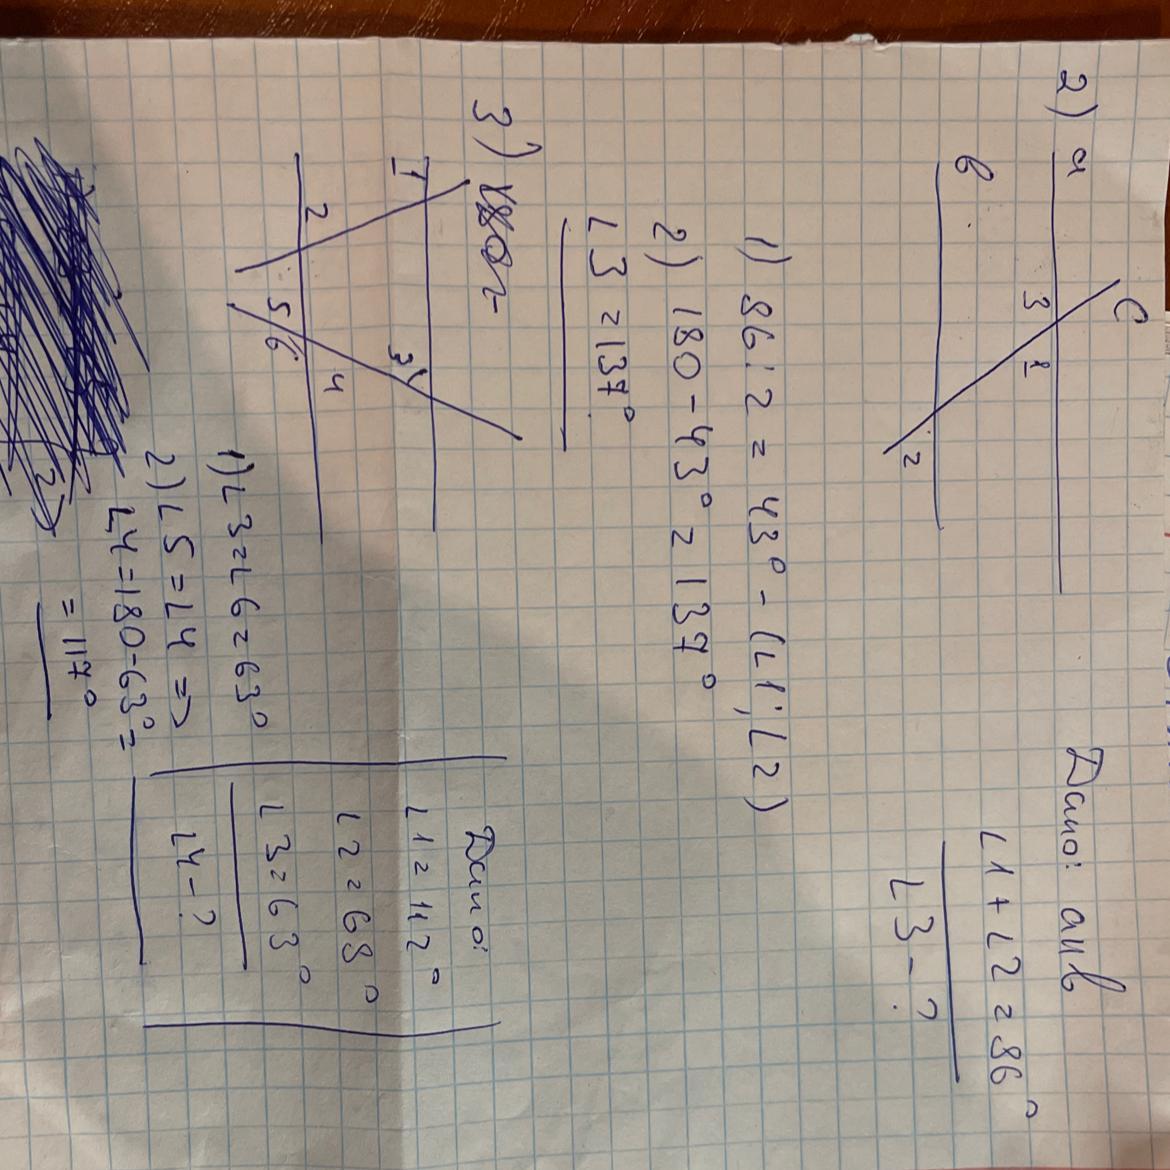 2) a
c
b
3 1
2
Дано: a॥b
∠1 + ∠2 = 86°
∠3 - ?
1) 86 : 2 = 43° - (∠1; ∠2)
2) 180 - 43° = 137°
∠3 = 137°
3)
1
3
2
4
5 6
Дано:
∠1 = 112°
∠2 = 68°
∠3 = 63°
∠4 - ?
1) ∠3 = ∠6 = 63°
2) ∠5 = ∠4 =>
∠4 = 180 - 63° =
= 117°